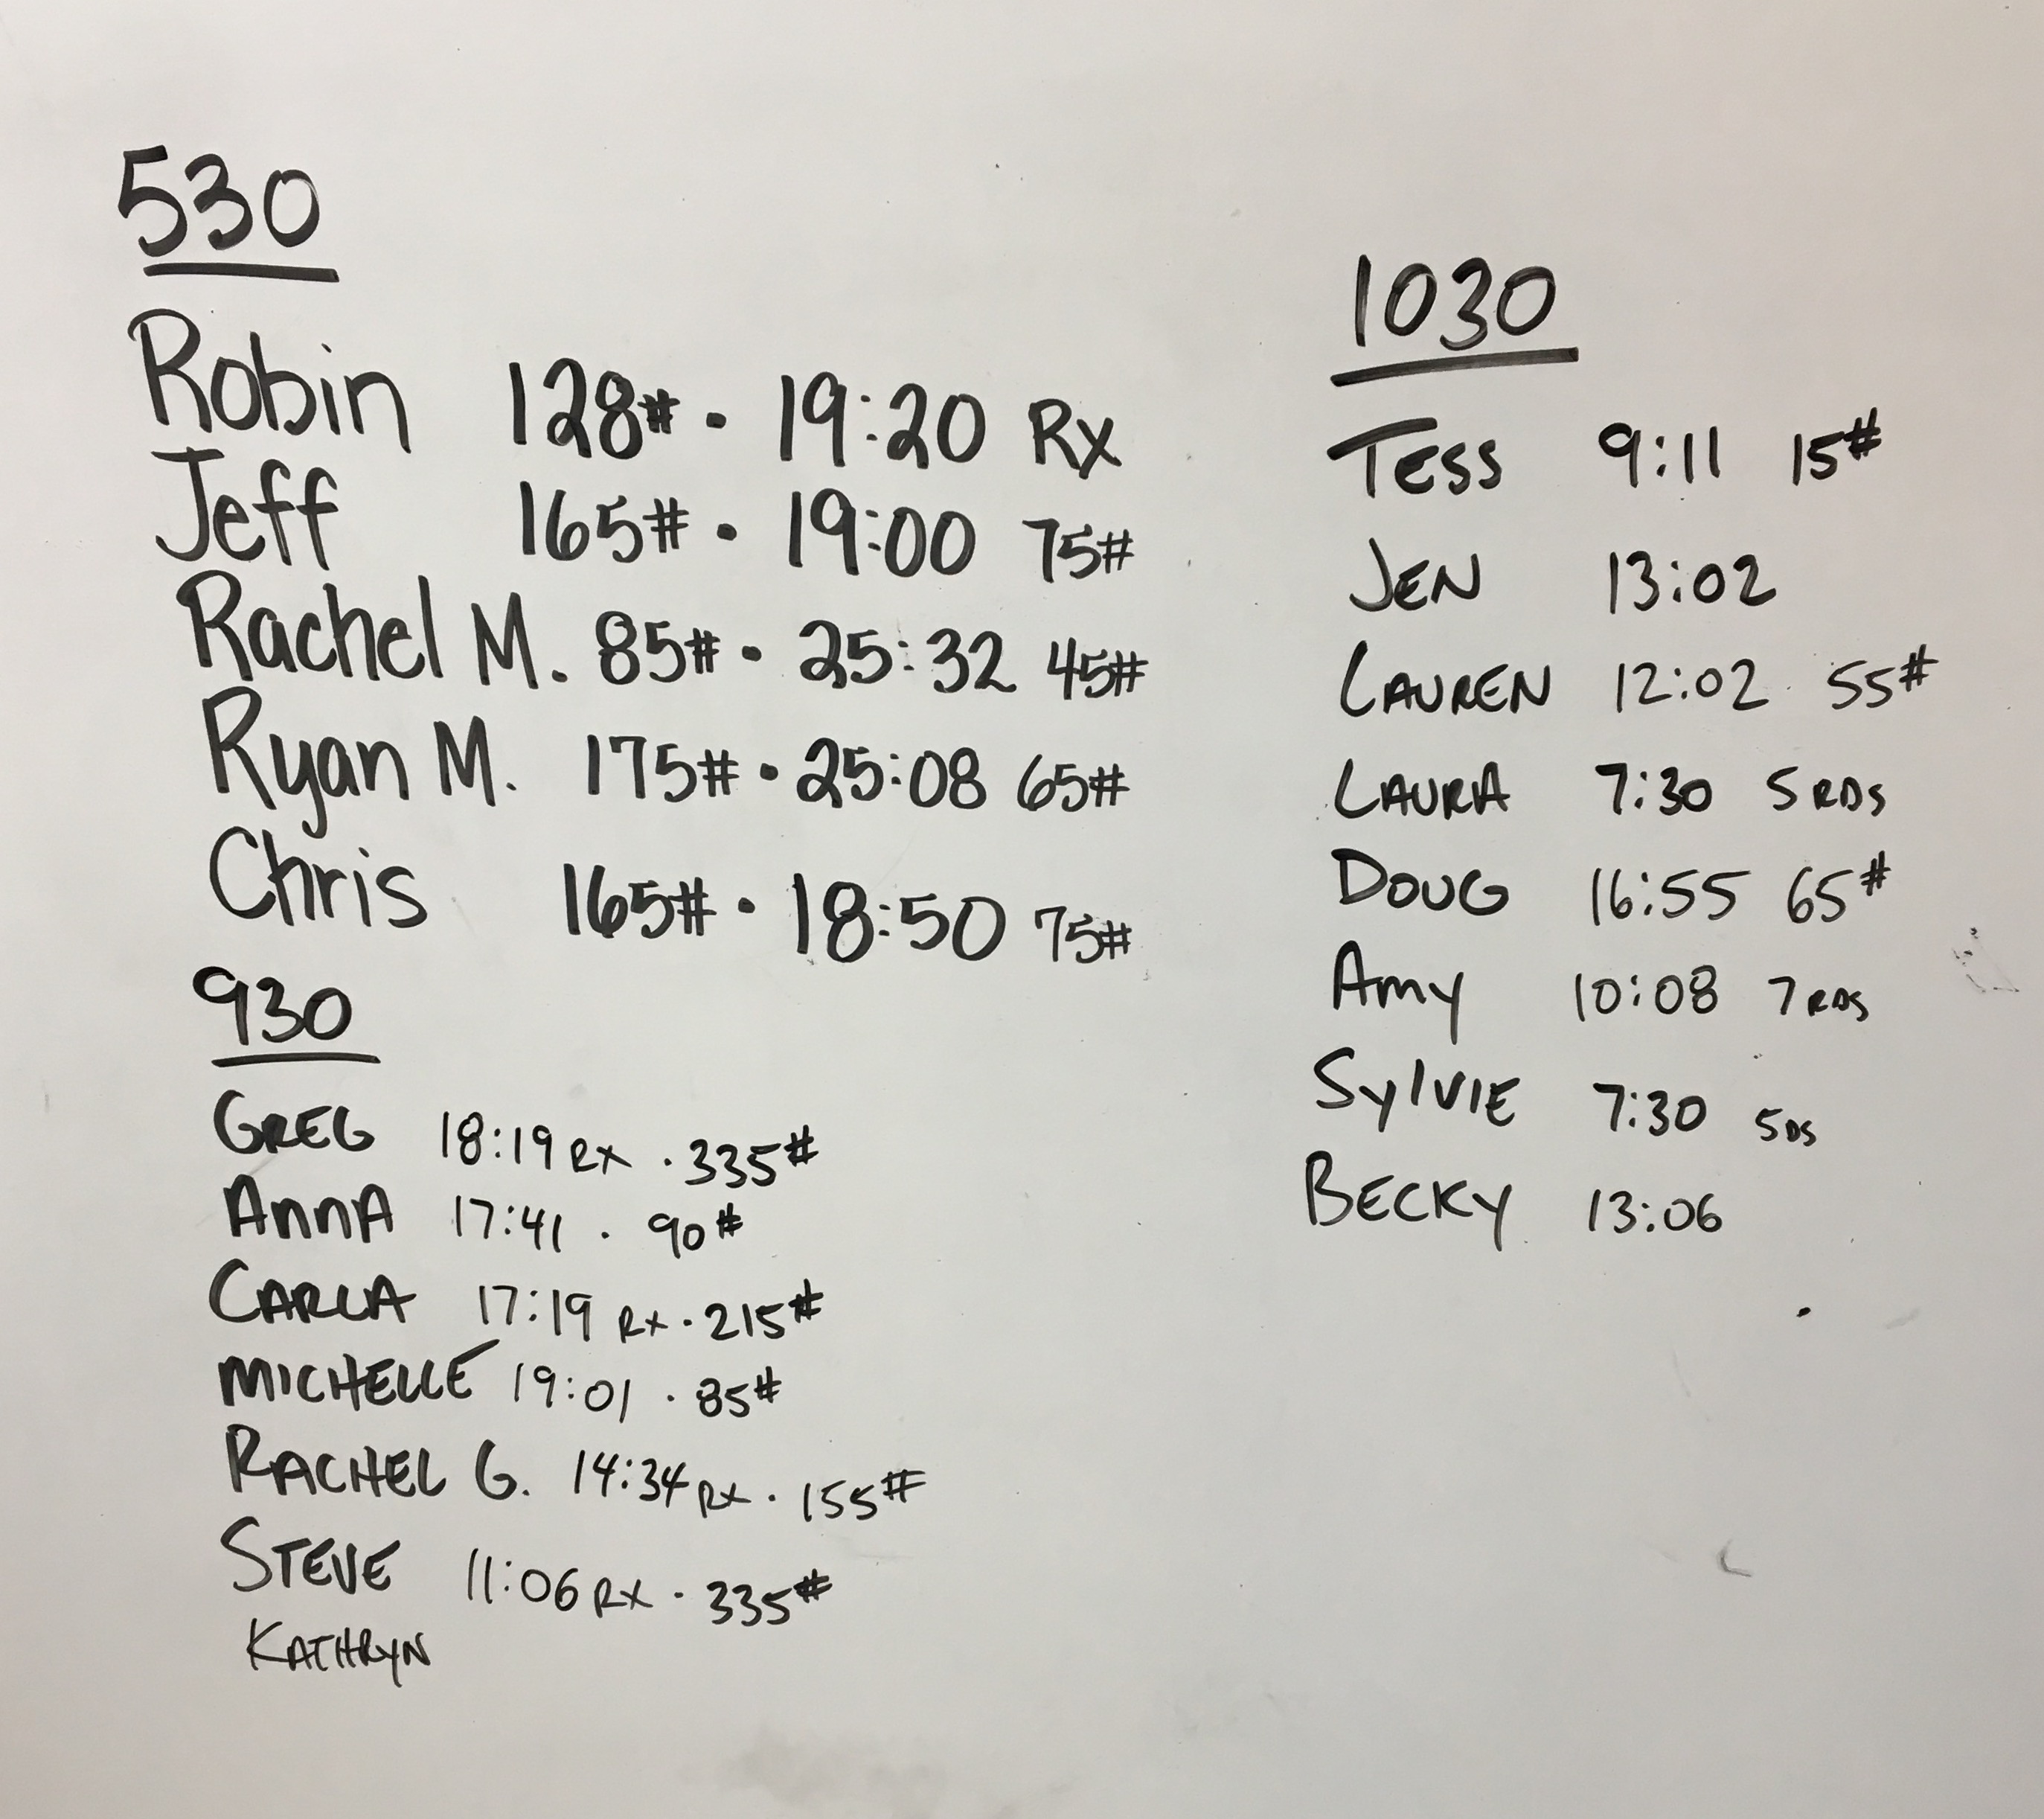 530
Robin 128# · 19:20 Rx
Jeff 165# · 19:00 75#
Rachel M. 85# · 25:32 45#
Ryan M. 175# · 25:08 65#
Chris 165# · 18:50 75#
930
GREG 18:19 RX · 335#
ANNA 17:41 · 90#
CARLA 17:19 RX · 215#
MICHELLE 19:01 · 85#
RACHEL G. 14:34 RX · 155#
STEVE 11:06 RX · 335#
KATHRYN
1030
TESS 9:11 15#
JEN 13:02
LAUREN 12:02 55#
LAURA 7:30 5 RDS
DOUG 16:55 65#
Amy 10:08 7 RDS
SylVIE 7:30 5DS
BECKY 13:06